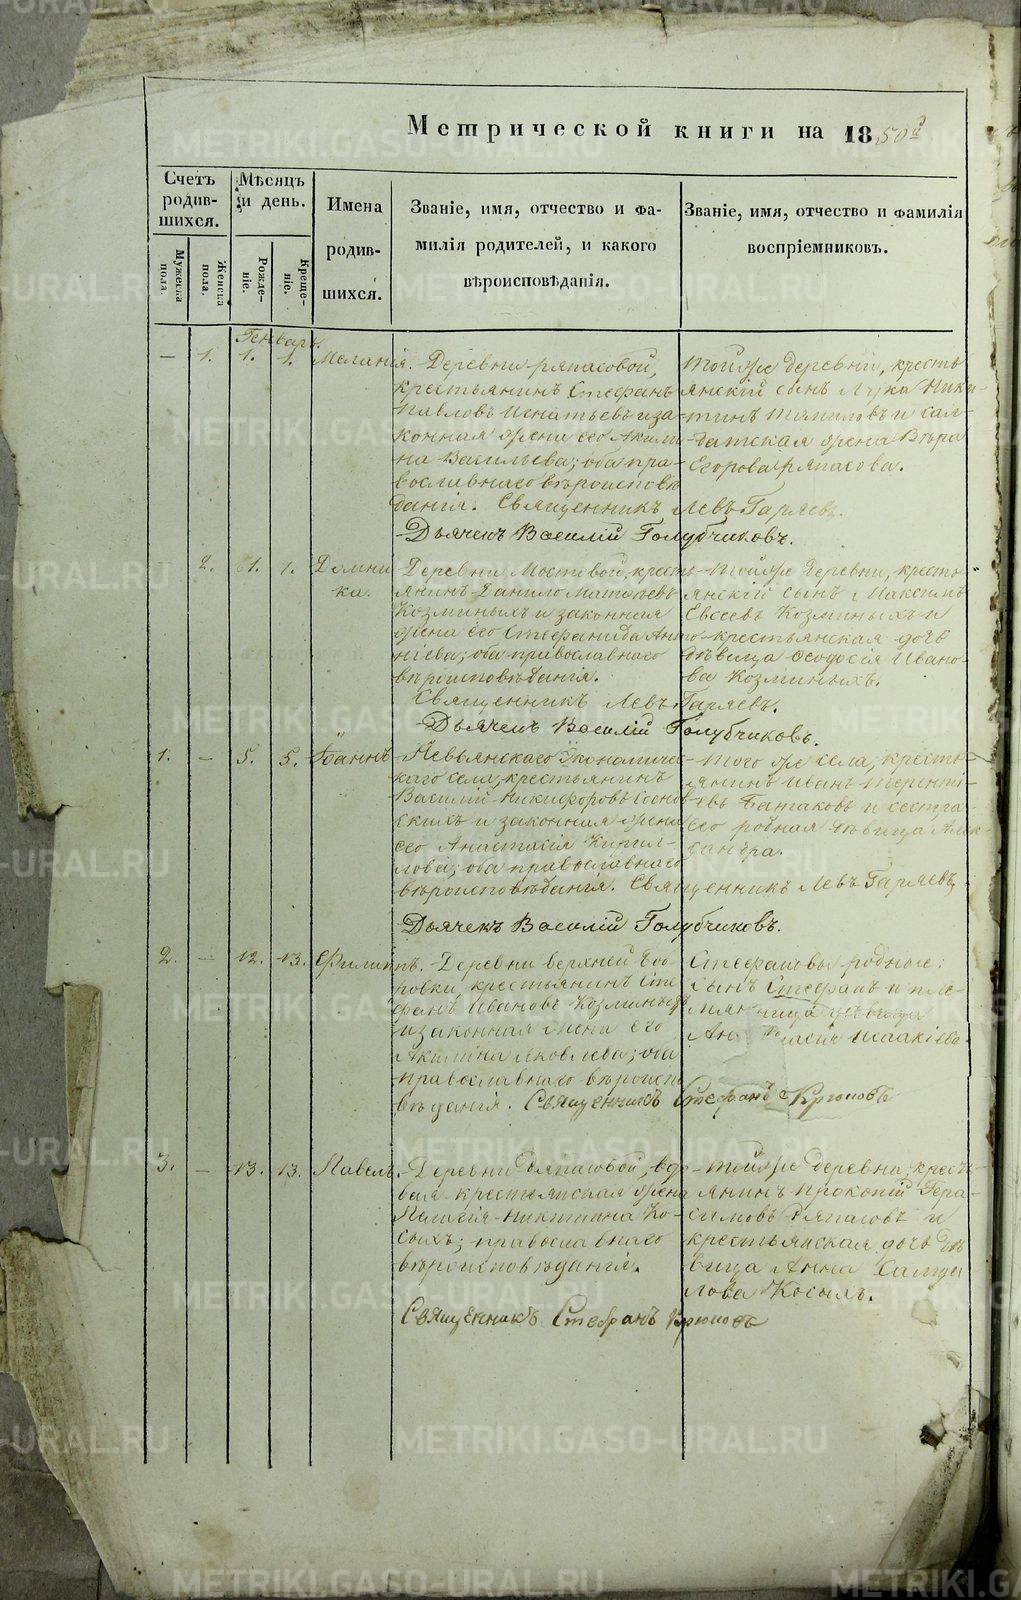 Метрической книги на 1850й
Счетъ родившихся.
Мѣсяцъ и день.
Имена родившихся.
Званіе, имя, отчество и фамилія родителей, и какого вѣроисповѣданія.
Званіе, имя, отчество и фамилія воспріемниковъ.
Мужеска пола.
Женска пола.
Рожденіе.
Крещеніе.
Генварь.
— 1. 1. 1. Меланія.
Деревни Ряпасовой,
крестьянинъ Стефанъ
Павловъ Игнатьевъ и за-
конная жена его Акили-
на Васильева; оба пра-
вославнаго вѣроисповѣ
данія. Священникъ Левъ Гаряевъ.
Дьячекъ Василій Голубчиковъ.
Той же деревни, кресть
янскій сынъ Лука Ники-
тинъ Томиловъ и сол-
датская жена Вѣра
Егорова Ряпасова.
2. 1. 1. Домни
ка.
Деревни Мостовой, кресть
янинъ Данило Матвѣевъ
Козминыхъ и законная
жена его Стефанида Анто
ніева; оба православнаго
вѣроисповѣданія.
Священникъ Левъ Гаряевъ.
Дьячекъ Василій Голубчиковъ.
Той же деревни, кресть-
янскій сынъ Максимъ
Евсеевъ Козминыхъ и
крестьянская дочь
дѣвица Ѳеодосія Ивано-
ва Козминыхъ.
1. — 5. 5. Іоаннъ
Невьянскаго Экономичес-
каго села, крестьянинъ
Василій Никифоровъ Соснов
скихъ и законная жена
его Анастасія Кирил-
лова; оба православнаго
вѣроисповѣданія. Священникъ Левъ Гаряевъ,
Дьячекъ Василій Голубчиковъ.
Того же села, кресть-
янинъ Иванъ Терентi-
евъ Батаковъ и сестра
его родная дѣвица Алек-
сандра.
2. — 12. 13. Филиппъ.
Деревни верхней Боб-
ровки, крестьянинъ Сте
фанъ Ивановъ Козминыхъ
и законная жена его
Акилина Яковлева; оба
православнаго вѣроиспо
вѣданія. Священникъ Стефанъ Крюковъ
Стефановы родные:
сынъ Стефанъ и пле-
мянница дѣвица
Исаакіева.
3. — 13. 13. Павелъ.
Деревни Ряпасовой, вдо-
вая крестьянская жена
Пелагія Никитина Ко-
сыхъ; православнаго
вѣроисповѣданія.
Священникъ Стефанъ Крюковъ
Той же деревни, кресть-
янинъ Прокопій Гера-
симовъ Ряпасовъ и
крестьянская дочь дѣ
вица Анна Самуи
лова Косыхъ.
METRIKI.GASO-URAL.RU